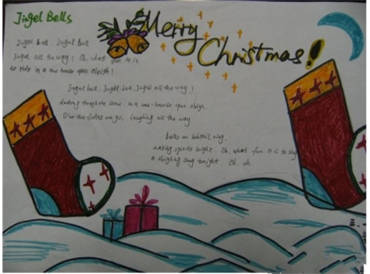 Jingel Bells
Merry
Christmas!
Jingel bell, Jingel bell
Jingel all the way! Oh what fun it is
to ride in a one horse open sleigh!
Jingel bell, Jingel bell, Jingel all the way!
Dashing through the snow in a one-horse open sleigh,
O'er the fields we go, laughing all the way
Bells on bobtail ring,
making spirits bright Oh, what fun it is to sing
A sleighing song tonight Oh, oh